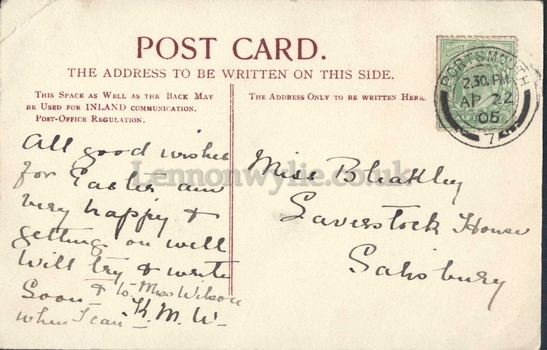 POST CARD.
THE ADDRESS TO BE WRITTEN ON THIS SIDE.
THIS SPACE AS WELL AS THE BACK MAY
BE USED FOR INLAND COMMUNICATION.
POST-OFFICE REGULATION.
All good wishes
for Easter am
very happy &
getting on well
Will try & write
Soon & to Miss Wilson
when I can - K. M. W-
THE ADDRESS ONLY TO BE WRITTEN HERE.
Miss Bleakley
Laverstock House
Salisbury
PORTSMOUTH
2.30. PM
AP 22
05
7
Lennonwylie.co.uk